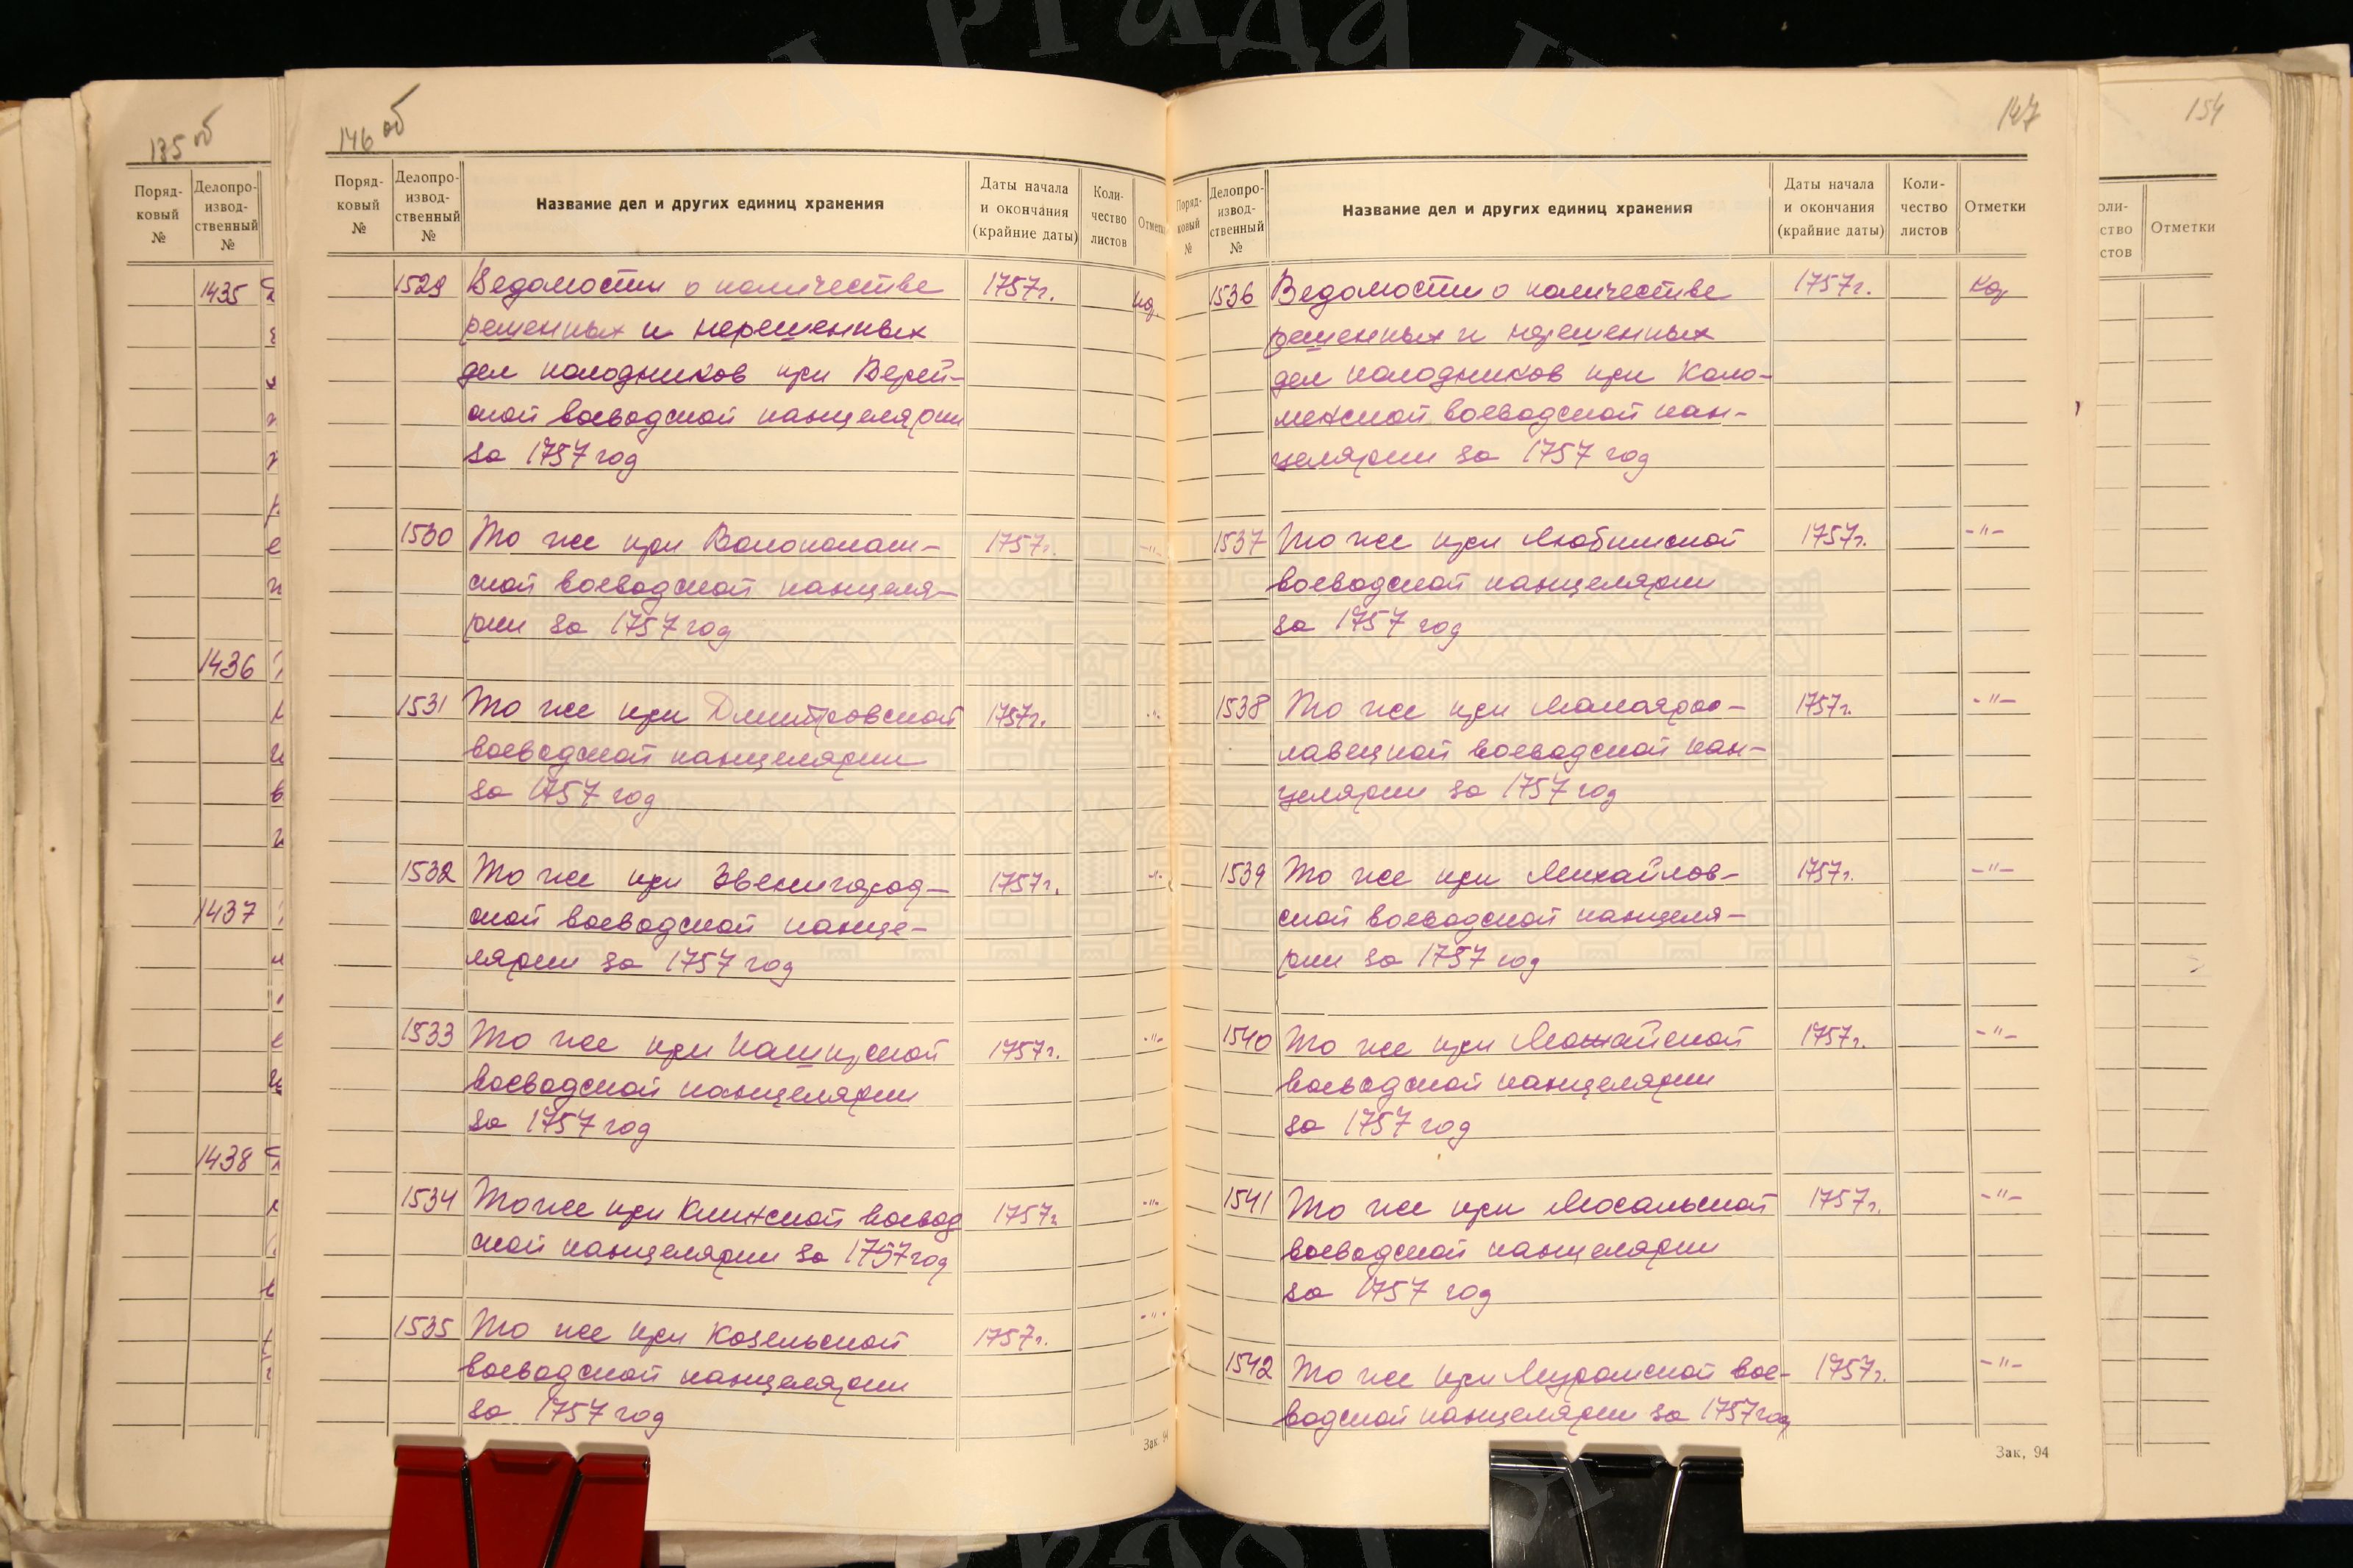 135 об
Поряд-
ковый
№
Делопро-
извод-
ственный
№
1435
1436
1437
1438
146 об
Поряд-
ковый
№
Делопро-
извод-
ственный
№
Название дел и других единиц хранения
Даты начала
и окончания
(крайние даты)
Коли-
чество
листов
1529 Ведомости о количестве 1757г.
решенных и нерешенных
дел колодников при Верей-
ской воеводской канцелярии
за 1757 год
1530 То же при Волоколам- 1757г. -"-
ской воеводской канцеля-
рии за 1757 год
1531 То же при Дмитровской 1757г. -"-
воеводской канцелярии
за 1757 год
1532 То же при Звенигород- 1757г. -"-
ской воеводской канце-
лярии за 1757 год
1533 То же при Каширской 1757г. -"-
воеводской канцелярии
за 1757 год
1534 То же при Клинской воевод 1757г. -"-
ской канцелярии за 1757 год
1535 То же при Козельской 1757г. -"-
воеводской канцелярии
за 1757 год
Зак. 94
147
Поряд-
ковый
№
Делопро-
извод-
ственный
№
Название дел и других единиц хранения
Даты начала
и окончания
(крайние даты)
Коли-
чество
листов
Отметки
1536 Ведомости о количестве 1757г.
решенных и нерешенных
дел колодников при Коло-
менской воеводской кан-
целярии за 1757 год
1537 То же при Любимской 1757г. -"-
воеводской канцелярии
за 1757 год
1538 То же при Малоярос- 1757г. -"-
лавецкой воеводской кан-
целярии за 1757 год
1539 То же при Михайлов- 1757г. -"-
ской воеводской канцеля-
рии за 1757 год
1540 То же при Можайской 1757г. -"-
воеводской канцелярии
за 1757 год
1541 То же при Мосальской 1757г. -"-
воеводской канцелярии
за 1757 год
1542 То же при Муромской вое- 1757г. -"-
водской канцелярии за 1757 год
Зак, 94
154
Отметки